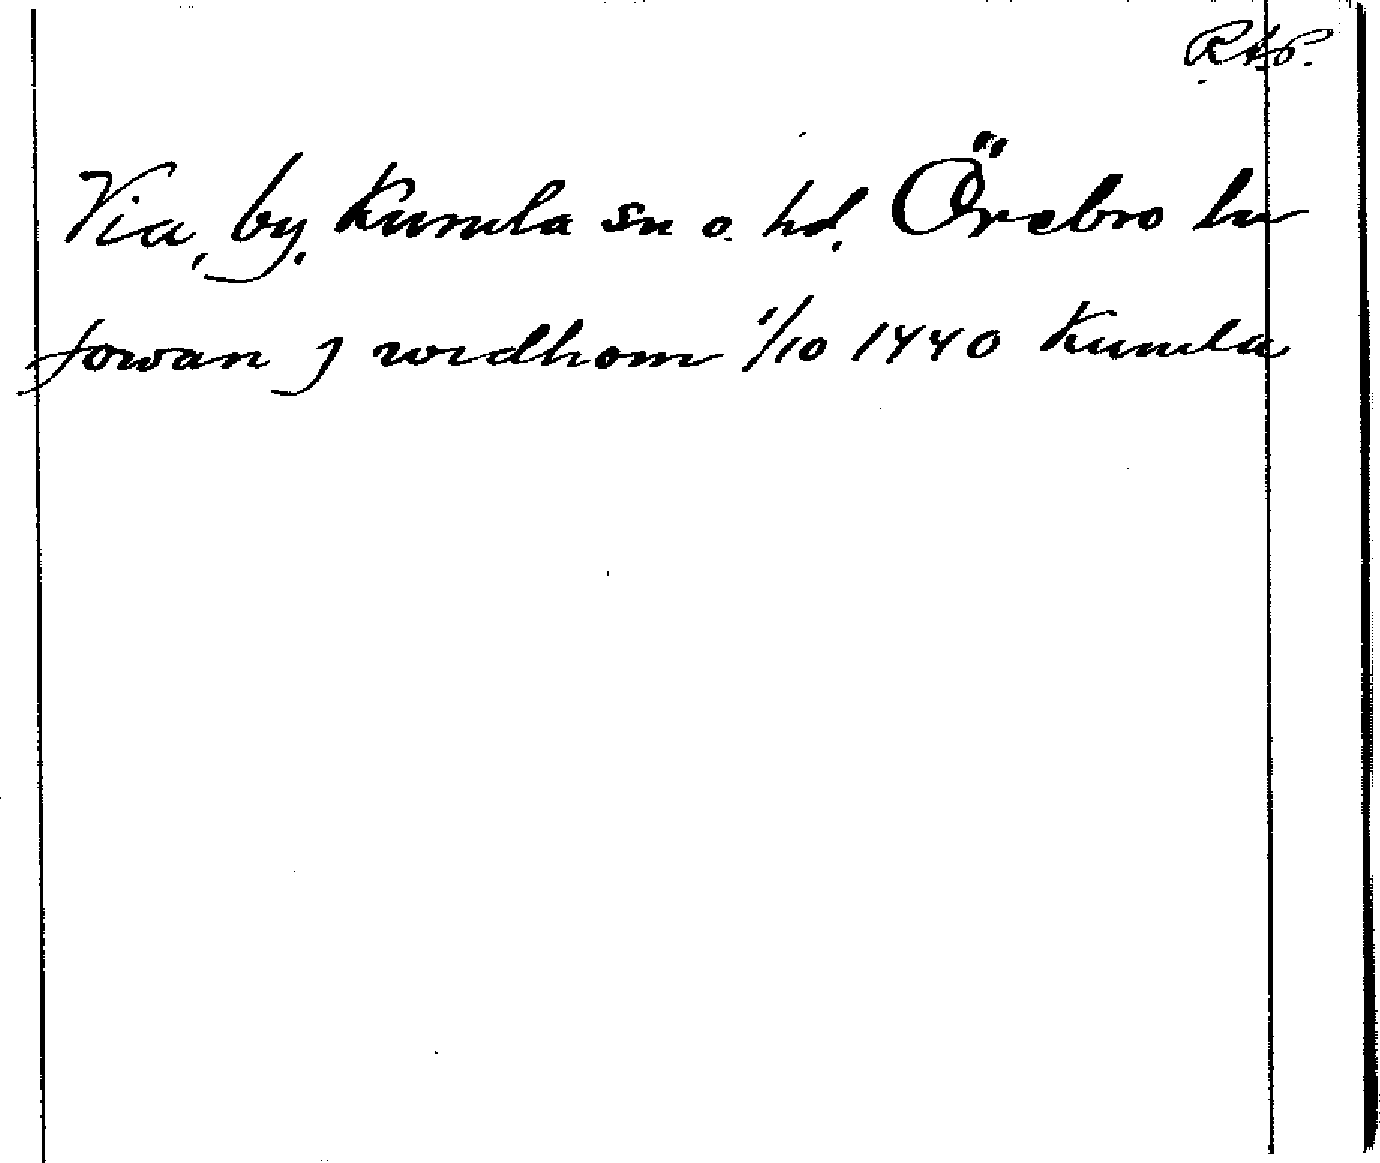 R.A.P.
Via, by, Kumla sn o. hd. Örebro ln
Jowan J widhom 1/10 1440 Kumla